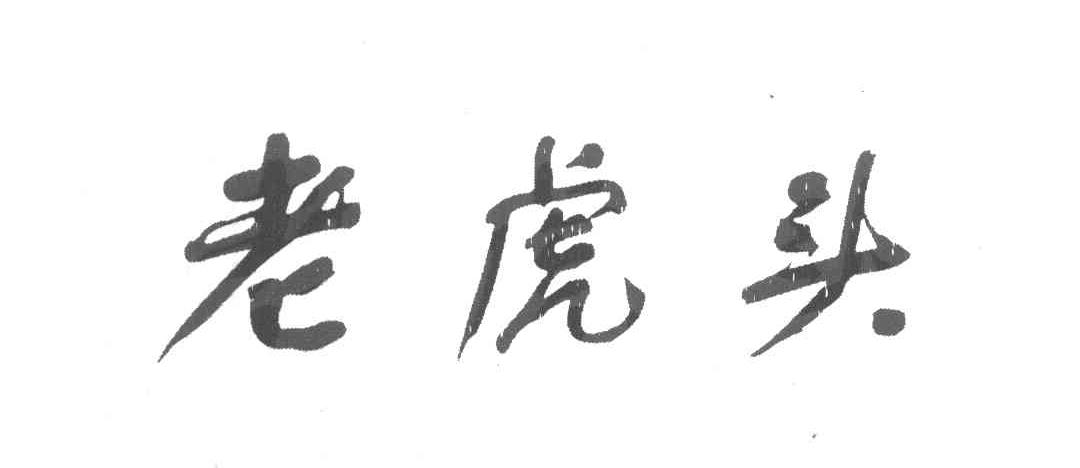 老虎头